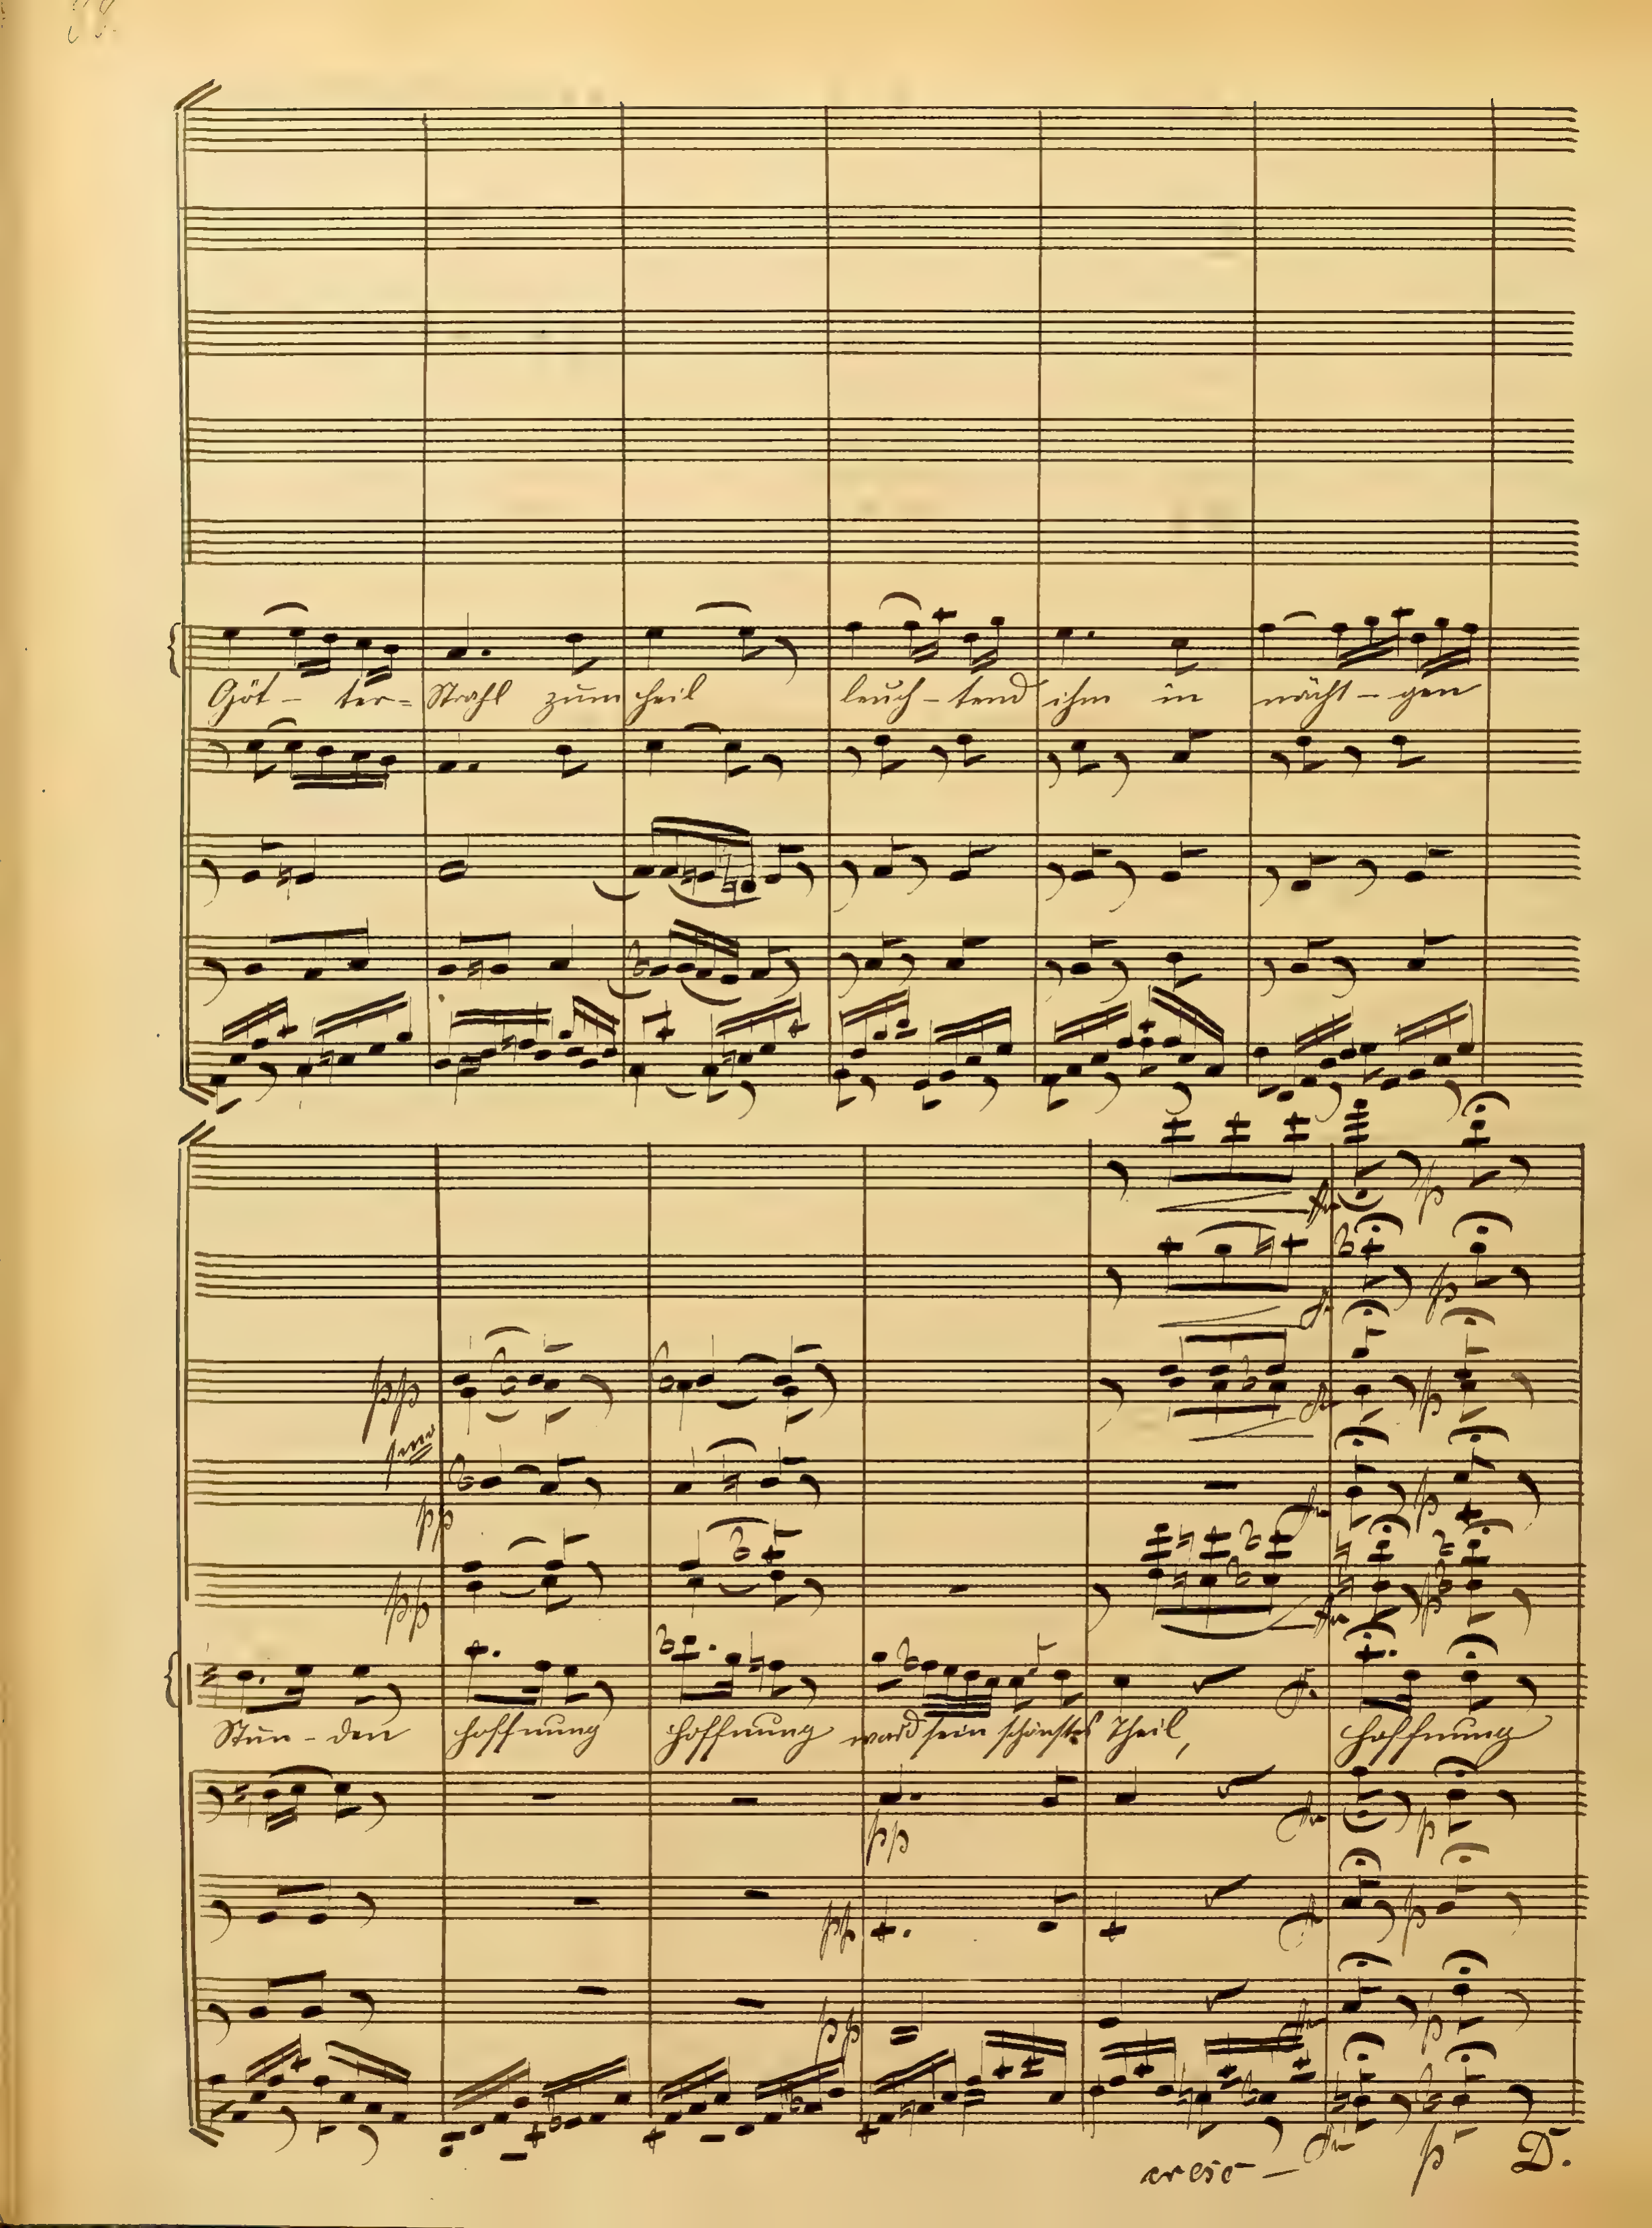 Göt - ter = Strahl zum theil leuch - tend ihm in nächt - gen
pp
1mo
pp
pp
fr p
Stun - den hoffnung hoffnung ward sein schönstes Theil, hoffnung
pp
pp
pp
cresc - p D.